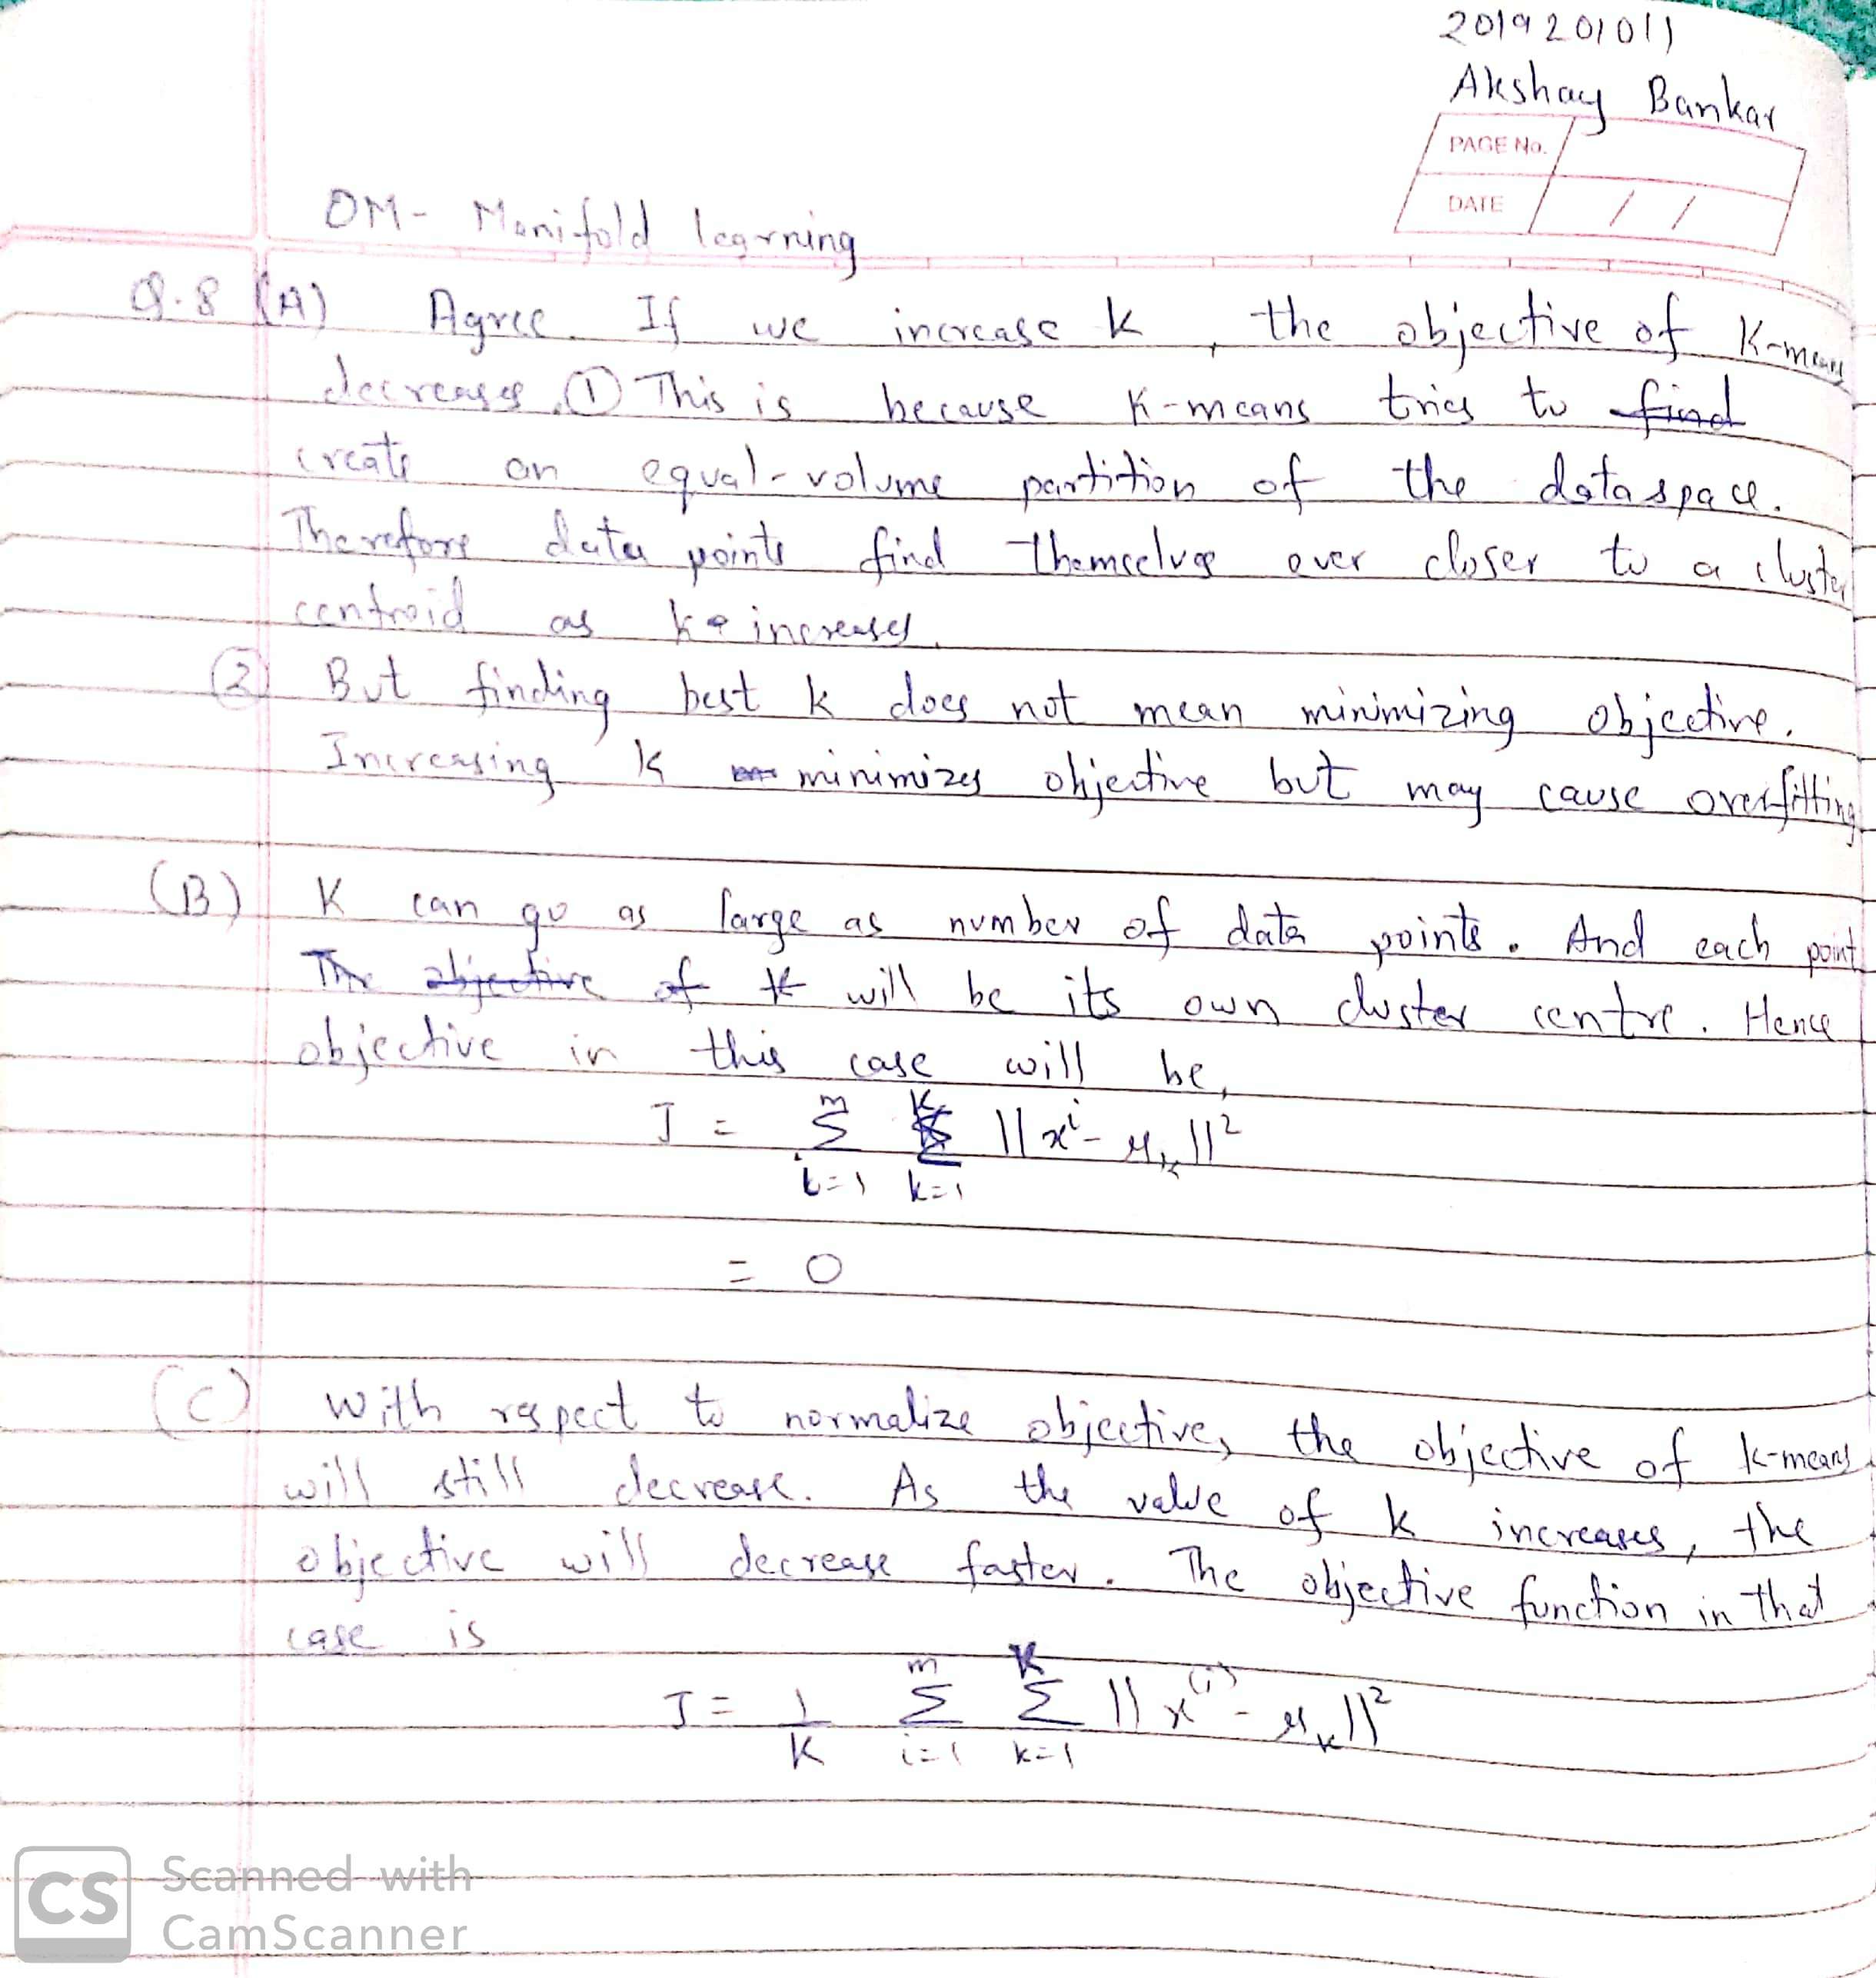 2019201011
Akshay Bankar
PAGE No.
DATE / /
DM- Manifold learning
Q.8 (A) Agree. If we increase k, the objective of K-means
decreases. ① This is because K-means tries to find
create an equal-volume partition of the dataspace.
Therefore data points find themselves ever closer to a cluster
centroid as k increases.
② But finding best k does not mean minimizing objective.
Increasing k minimizes objective but may cause overfitting
(B) K can go as large as number of data points. And each point
The objective of K will be its own cluster centre. Hence
objective in this case will be,
J = m Σ i=1 K Σ k=1 ||x^i - μ_k||²
= 0
(C) With respect to normalize objective, the objective of k-means
will still decrease. As the value of k increases, the
objective will decrease faster. The objective function in that
case is
J = 1/K m Σ i=1 K Σ k=1 ||x^(i) - μ_k||²
CS Scanned with
CamScanner